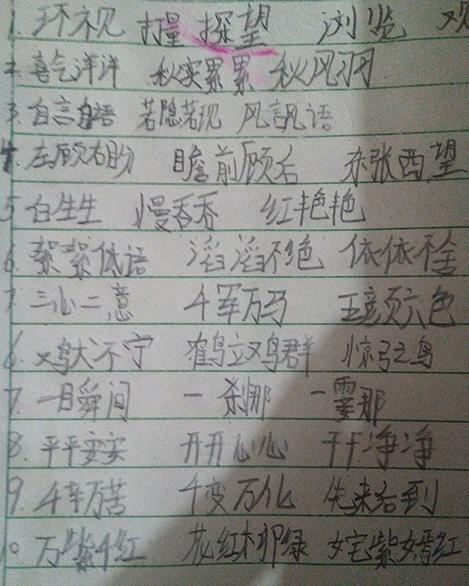 1. 环视 打量 探望 浏览 观
2. 喜气洋洋 秋实累累 秋风习
3. 自言自语 若隐若现 风言风语
4. 左顾右盼 瞻前顾后 东张西望
5 白生生 慢吞吞 红艳艳
6. 絮絮低语 滔滔不绝 依依不舍
7. 三心二意 千军万马 五颜六色
6. 鸡犬不宁 鹤立鸡群 惊弓之鸟
7. 一瞬间 一刹那 一霎那
8. 平平安安 开开心心 干干净净
9. 千辛万苦 千变万化 先来后到
10 万紫千红 花红柳绿 姹紫嫣红